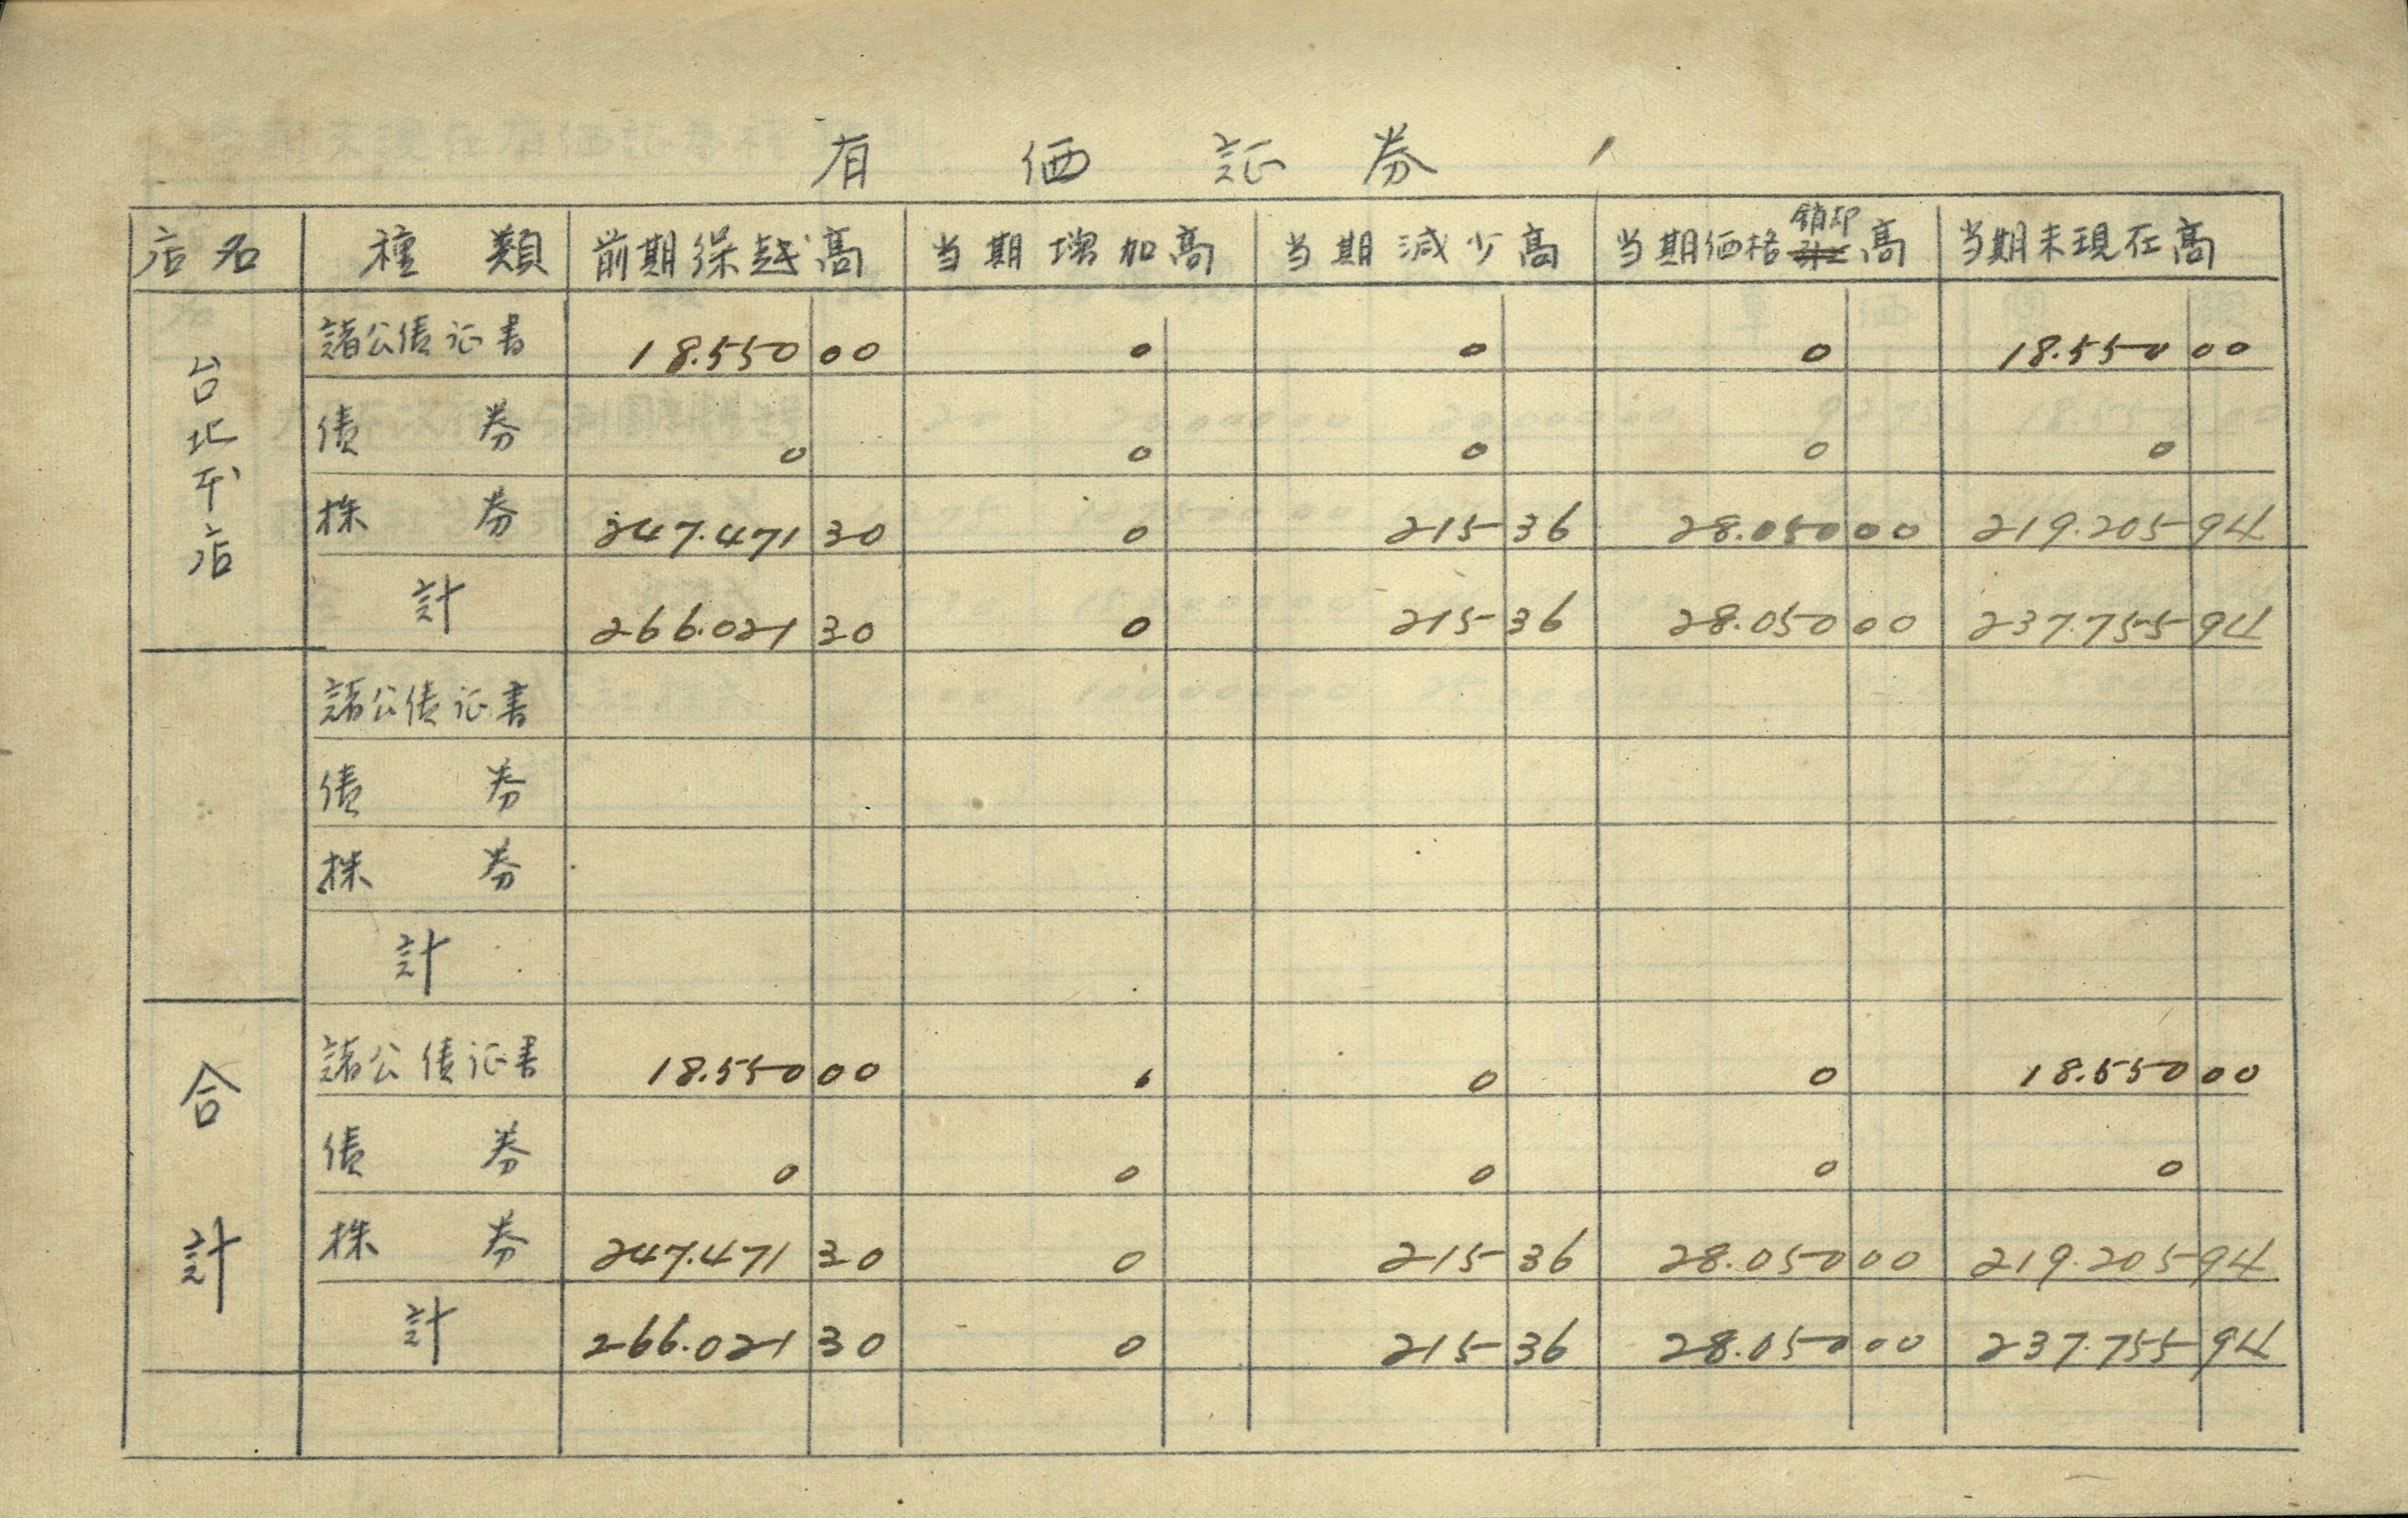 有価証券
店名 種類 前期繰越高 当期増加高 当期減少高 当期価格銷却高 当期末現在高
台北本店 諸公債証書 18.550 00 0 0 0 18.550 00
債券 0 0 0 0 0
株券 247.471 30 0 215 36 28.050 00 219.205 94
計 266.021 30 0 215 36 28.050 00 237.755 94
諸公債証書
債券
株券
計
合計 諸公債証書 18.550 00 0 0 0 18.550 00
債券 0 0 0 0 0
株券 247.471 30 0 215 36 28.050 00 219.205 94
計 266.021 30 0 215 36 28.050 00 237.755 94